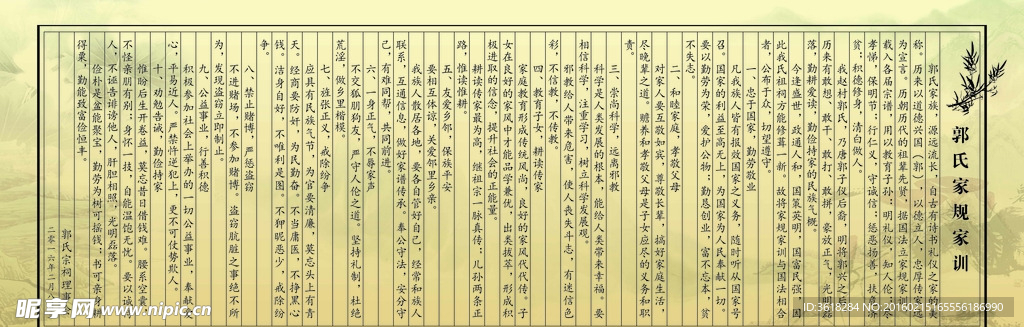 郭氏家规家训
郭氏家族，源远流长，自古有诗书礼仪之家的美
称。历来以道德兴国（郭），以德立人，忠厚传家远
为宣言。历朝历代的祖辈先贤，据国法立家规家训
载入各届宗谱，用以教育子孙；明礼仪，知人伦；尽
孝悌，保明节；行仁义，守诚信；惩恶扬善，扶危济
贫；积德修身，清白做人。
我赵村郭氏，乃唐郭子仪后裔，明将郭兴之后
历来有敢想、敢干、敢打、敢拼，豪放正气，光明磊
落，勤耕爱读，勤俭持家的民族气概。
今逢盛世，政通人和，国策英明，国富民强，因
此我氏祖祠方能修葺一新，故将家规家训与国法相合
者，公布于众，切望遵守。
一、忠于国家，勤劳敬业
凡我族人皆有报效国家之义务，随时听从国家号
召。国家的利益至高无上，为国家为人民奉献一切。
要以勤劳为荣，爱护公物；勤恳创业，富不忘本，贫
不失志。
二、和睦家庭，孝敬父母
对家人要互敬如宾，尊敬长辈，搞好家庭生活，
尽晚辈之道。赡养和孝敬父母是子女应尽的义务和职
责。
三、崇尚科学，远离邪教
科学是人类发展的根本，能给人类带来幸福。要
相信科学，注重学习，树立科学发展观。
邪教给人带来危害，使人丧失斗志，有迷信色
彩，不信教，不传教。
四、教育子女，耕读传家
家庭教育形成传统风尚，良好的家风代代传。子
女在良好的家风中才能品学兼优，出类拔萃，形成积
极进取的信念，提升社会的正能量。
耕读传家最为高，继祖宗一脉真传；儿孙两条正
路，惟读惟耕。
五、友爱乡邻，保族平安
要相互体谅，关爱邻里乡亲。
我族人散居各地，要各自管好自己，经常和族人
联系，互通信息，做好家谱传承。奉公守法，安分守
己，有难同帮，共同前进。
六、一身正气，不辱家声
不交狐朋狗友，严守人伦之道。坚持礼制，杜绝
荒淫，做乡里楷模。
七、旌张正义，戒除纷争
应具有民族气节，为官要清廉，莫忘头上有青
天。经商要防奸，为民勤奋。不当庸医，不挣黑心
钱。洁身自好，不唯利是图。不狎昵恶少，戒除纷
争。
八、禁止赌博，严惩盗窃
不进赌场，不参加赌博。盗窃肮脏之事绝不所
为，发现盗窃立即制止。
九、公益事业，行善积德
积极参加社会上举办的一切公益事业，奉献爱
心，平易近人。严禁忤逆犯上，更不可仗势欺人。
十、劝勉告诫，勤俭持家
惟盼后生开卷益，莫忘昔日借钱难。腰系空囊
不怪亲朋有别；身怀一技，自能温饱无忧。要以诚待
人，不诓告诽谤他人，肝胆相照，光明磊落。
俭朴是盆能聚宝，勤劳为树可摇钱。书可亲身
得粟，勤能致富俭恒丰。
郭氏宗祠理事
二零一六年二月八
昵享网 www.nipic.cn
www.nipic.com
ID:3618284 NO:20160215165556186990